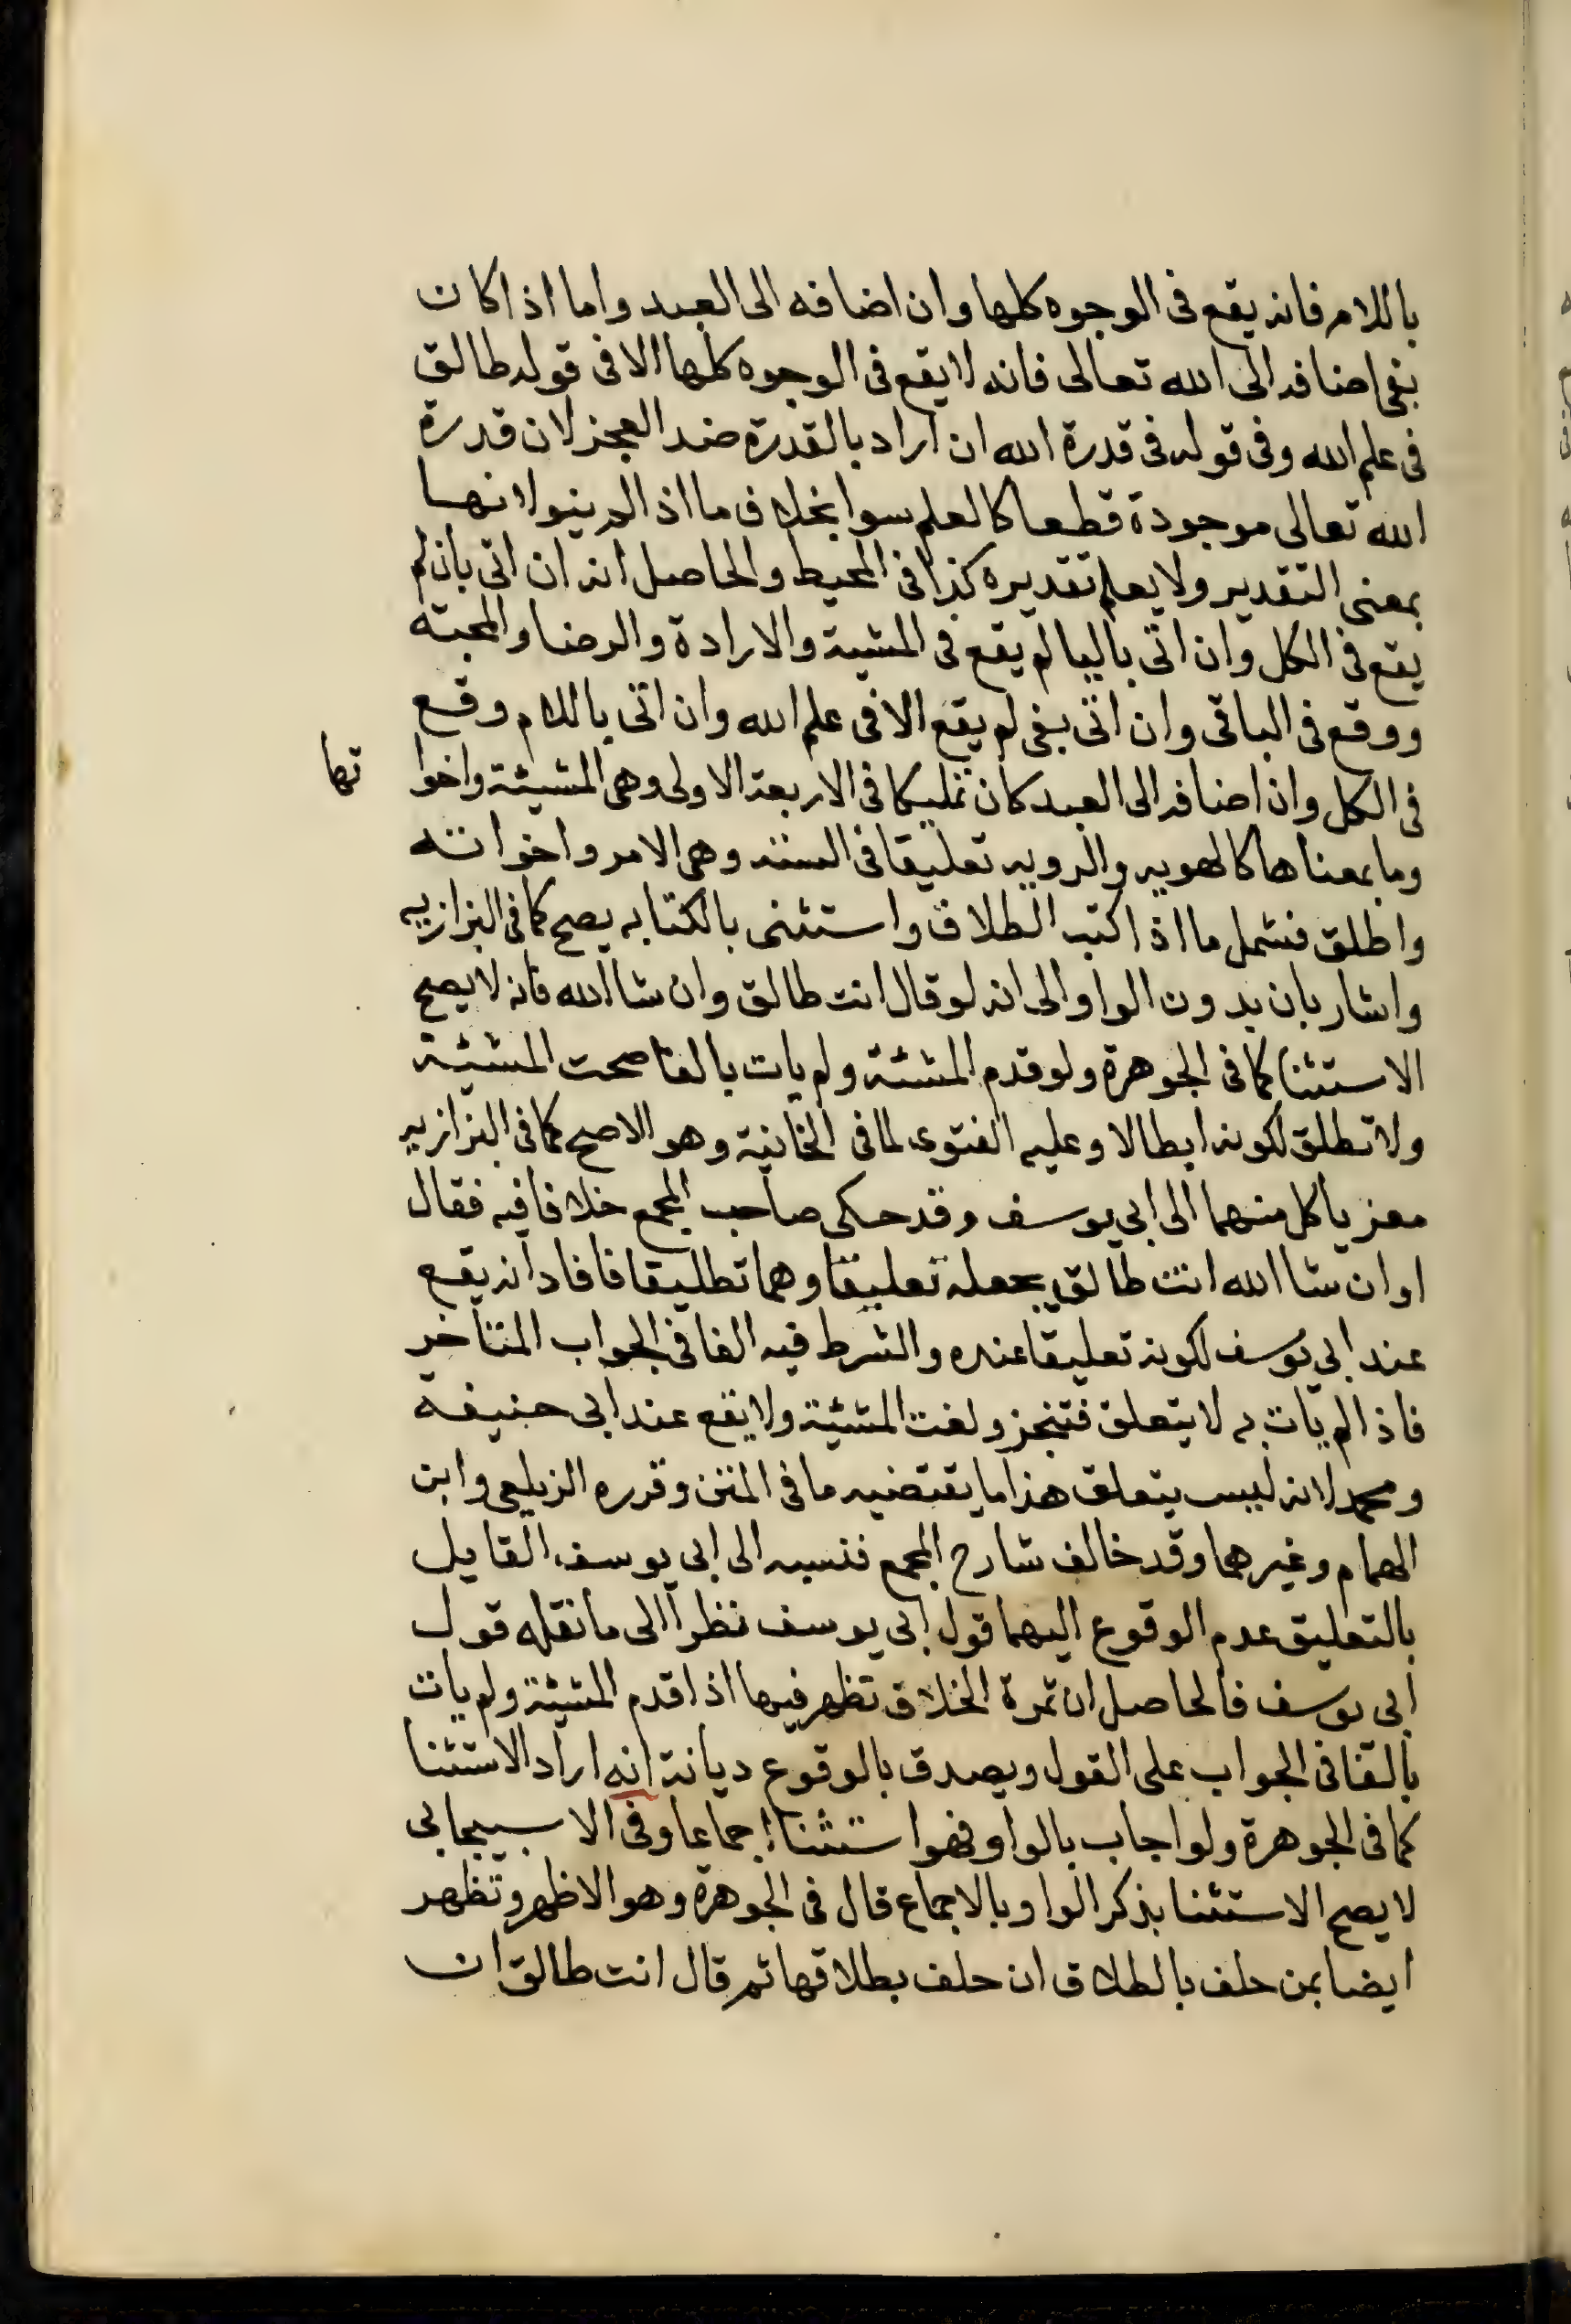 باللام فانه يقع فى الوجوه كلها وان اضافه الى العبد واما اذا كان
بفى اضافه الى الله تعالى فانه لا يقع فى الوجوه كلها الا فى قوله طالق
فى علم الله وفى قوله فى قدرة الله ان اراد بالقدرة ضد العجز لان قدرة
الله تعالى موجودة قطعا كالعلم سوا بخلاف ما اذا لم ينو لانها
بمعنى التقدير ولا يعلم تقديره كذا فى المحيط والحاصل انه ان اتى بان لم
يقع فى الكل وان اتى بالبا لم يقع فى المشية والارادة والرضا والمحبته
ووقع فى الباقى وان اتى بفى لم يقع الا فى علم الله وان اتى باللام وقع
فى الكل وان اضافه الى العبد كان تمليكا فى الاربعة الاولى وهى المشيئة واخوا تها
وما بمعناها كالهويه والرويه تعليقا فى الستة وهى الامر واخواته
واطلق فشمل ما اذا كتب الطلاق واستثنى بالكتابه يصح كما فى البزازيه
واشار بان بدون الواو الى انه لو قال انت طالق وان شا الله فانه لا يصح
الاستثنا كما فى الجوهرة ولو قدم المشئة ولم يات بالفا صحت المشيئة
ولا تطلق لكونه ابطالا وعليه الفتوى لما فى الخانية وهو الاصح كما فى البزازيه
معزيا كل منهما الى ابى يوسف وقد حكى صاحب المجمع خلافا فيه فقال
او ان شا الله انت طالق يجعله تعليقا وهما تطليقا فافاد انه يقع
عند ابى يوسف لكونه تعليقا عنده والشرط فيه الفا فى الجواب المتاخر
فاذا لم يات به لا يتعلق فتنجز ولغت المشيئة ولا يقع عند ابى حنيفة
ومحمد لانه ليس يتعلق هذا ما يقتضيه ما فى المتن وقرره الزيلعى وابن
الهمام وغيرهما وقد خالف شارح المجمع فنسبه الى ابى يوسف القايل
بالتعليق عدم الوقوع اليهما قول ابى يوسف نظرا الى ما نقله قول
ابى يوسف فالحاصل ان ثمرة الخلاف تظهر فيها اذا قدم المشيئة ولم يات
بالفا فى الجواب على القول ويصدق بالوقوع ديانة انه اراد الاستثنا
كما فى الجوهرة ولو اجاب بالواو فهو استثنا اجماعا وفى الاسبيجابى
لا يصح الاستثنا بذكر الواو بالاجماع قال فى الجوهرة وهو الاظهر وتظهر
ايضا بمن حلف بالطلاق ان حلف بطلاقها ثم قال انت طالق ان